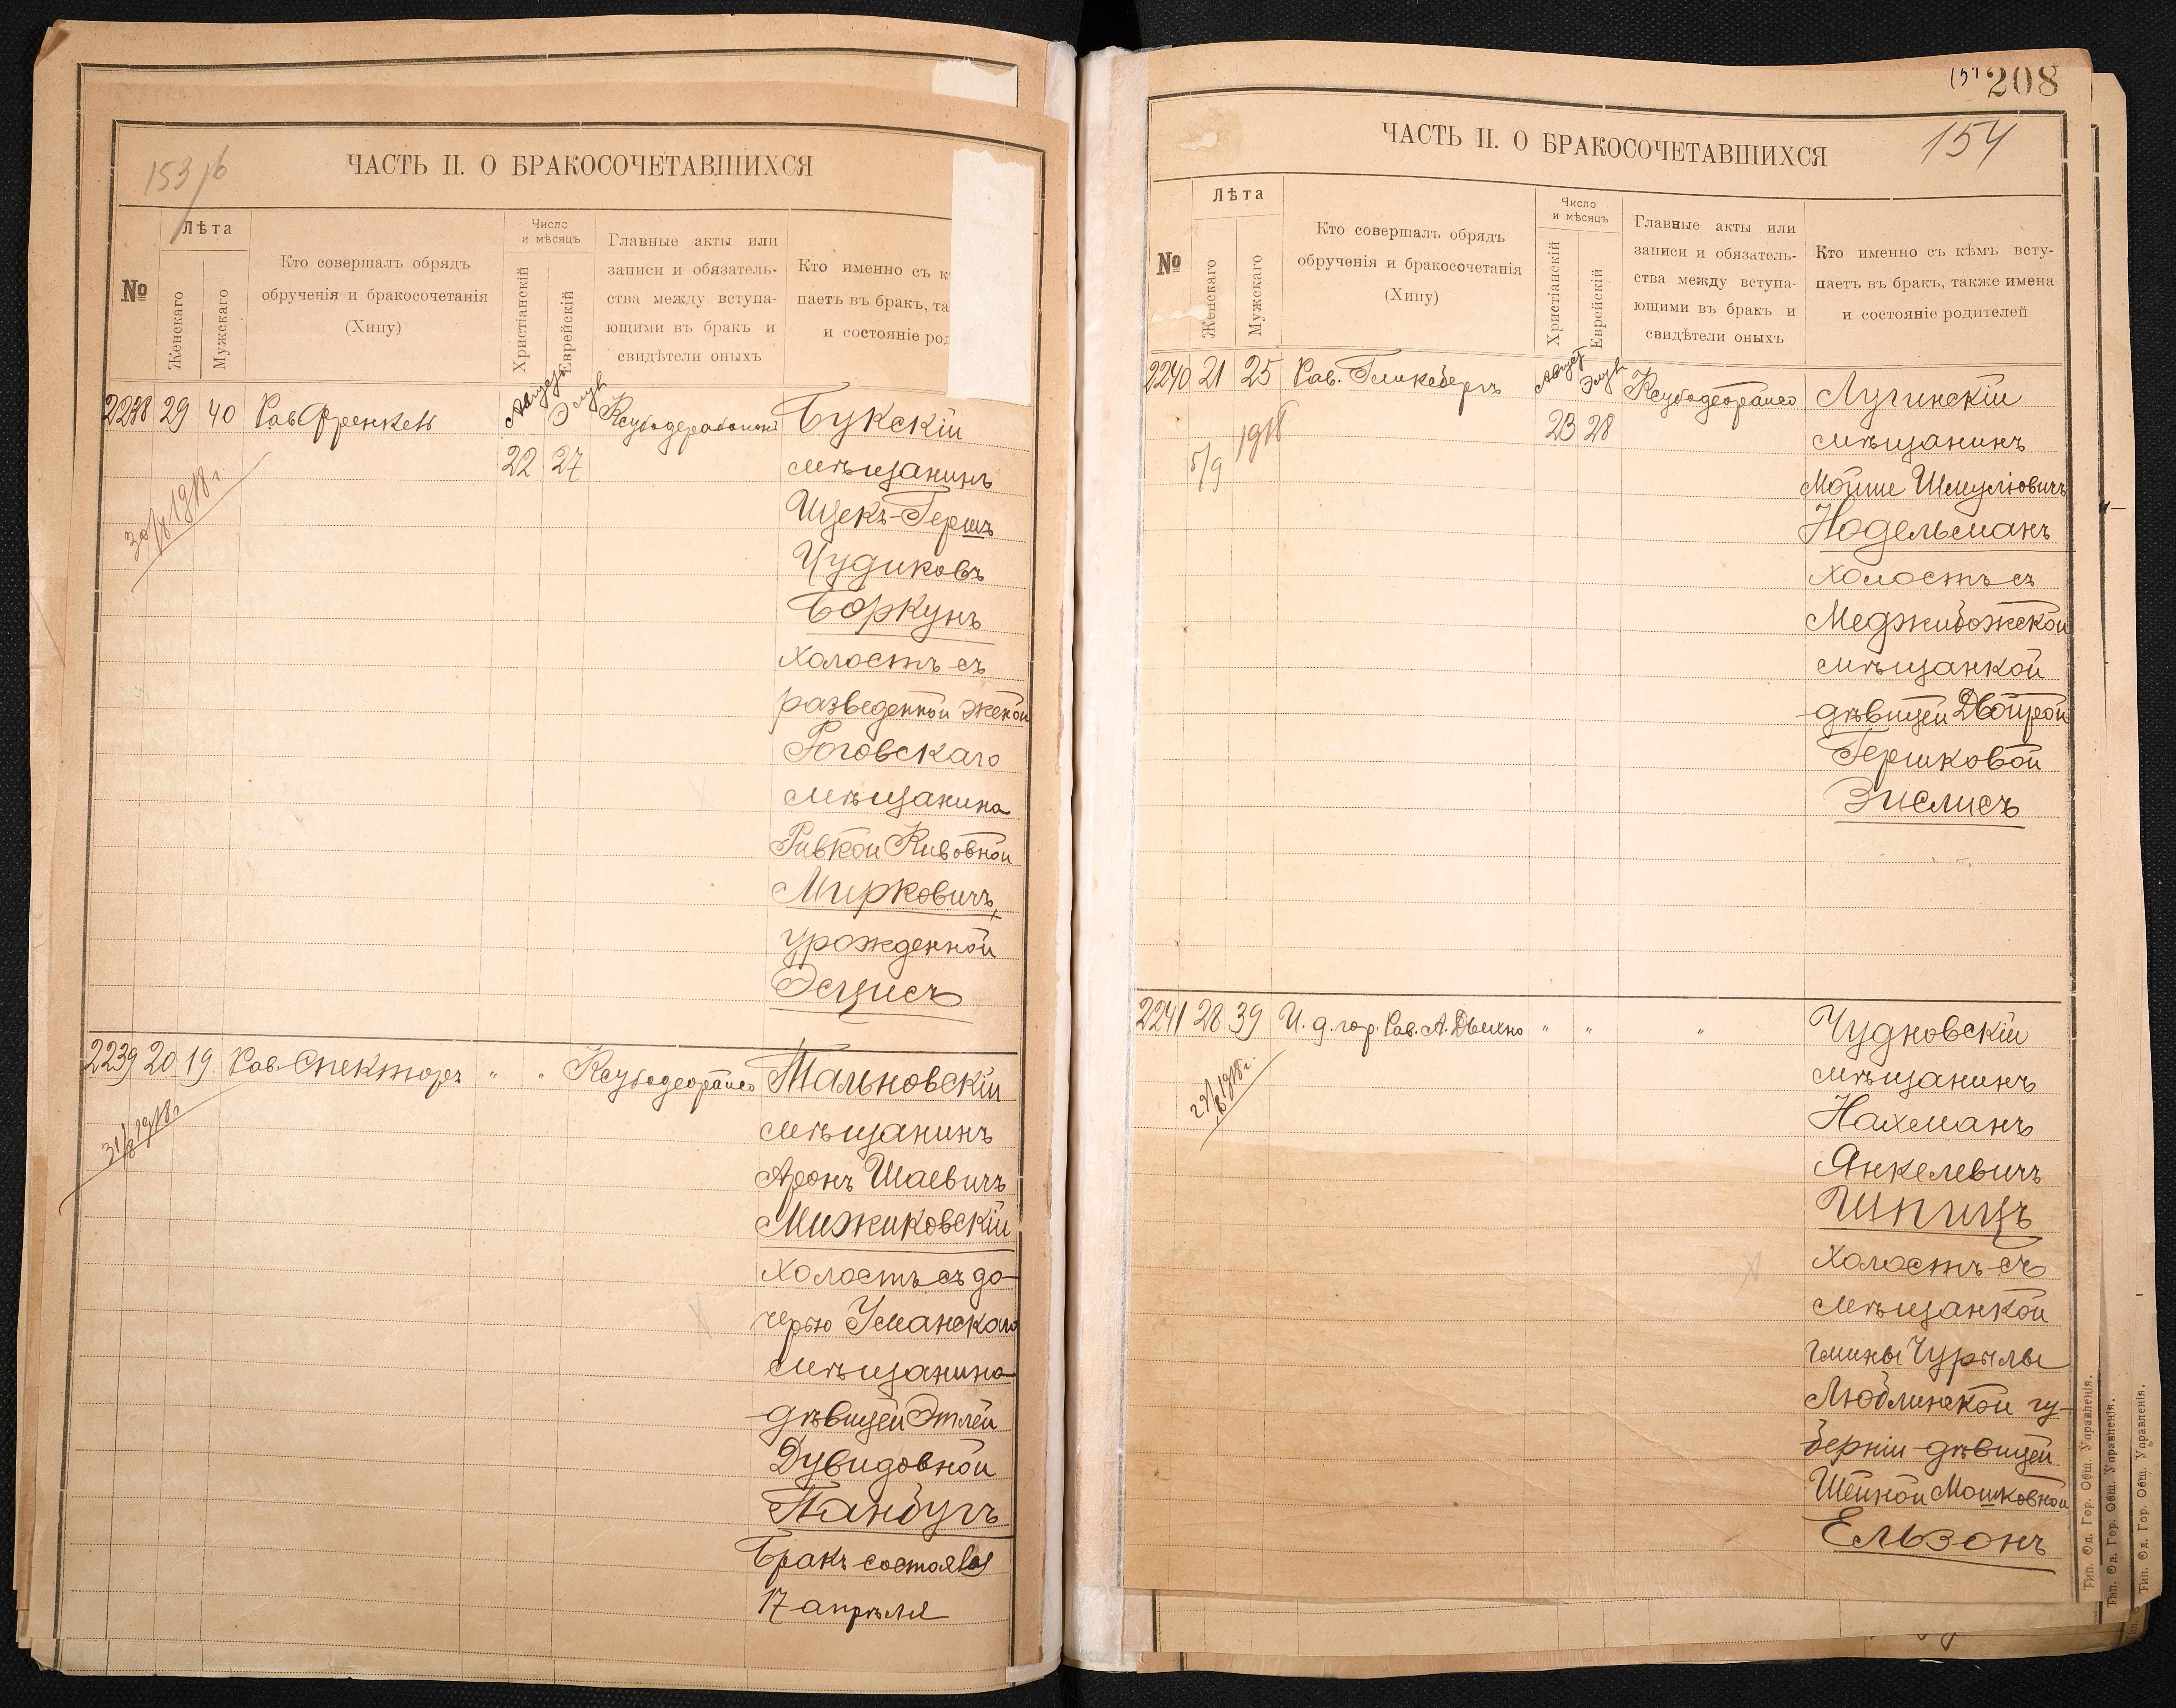 153 об
ЧАСТЬ II. О БРАКОСОЧЕТАВШИХСЯ
№
Лѣта
Женскаго
Мужскаго
Кто совершалъ обрядъ
обрученія и бракосочетанія
(Хипу)
Число
и мѣсяцъ
Христіанскій
Еврейскій
Главные акты или
записи и обязатель-
ства между вступа-
ющими въ бракъ и
свидѣтели оныхъ
Кто именно съ к
паетъ въ бракъ, та
и состояніе род
2238 29 40 Рав. Френкель Августъ Элулъ
22 27
30/8 1918 г.
Букскій
мѣщанинъ
Ицекъ-Гершъ
Чудиковъ
Боркунъ
холостъ съ
разведенной женой
Роговскаго
мѣщанина
Ривкой Кивовной
Мирковичъ,
урожденной
Эсцисъ
2239 20 19 Рав. Спекторъ " "
31/8 1918 г.
Тальновскій
мѣщанинъ
Аронъ Шаевичъ
Мижиковскій
холостъ съ до-
черью Уманскаго
мѣщанина
дѣвицей Этлей
Дувидовной
Танбугъ
Бракъ состоялся
17 апрѣля
208
154
ЧАСТЬ II. О БРАКОСОЧЕТАВШИХСЯ
№
Лѣта
Женскаго
Мужскаго
Кто совершалъ обрядъ
обрученія и бракосочетанія
(Хипу)
Число
и мѣсяцъ
Христіанскій
Еврейскій
Главные акты или
записи и обязатель-
ства между вступа-
ющими въ бракъ и
свидѣтели оныхъ
Кто именно съ кѣмъ всту-
паетъ въ бракъ, также имена
и состояніе родителей
2240 21 25 Рав. Гликсбергъ Августъ Элулъ
23 28
5/9 1918
Лугинскій
мѣщанинъ
Мойше Шмулiовичъ
Нодельманъ
холостъ съ
Меджибожской
мѣщанкой
дѣвицей Двойрой
Гершковой
Энслисъ
2241 28 39 И. д. гор. Рав. А. Дыхно " " "
29/8 1918 г.
Чудновскій
мѣщанинъ
Нахманъ
Янкелевичъ
Шпицъ
холостъ съ
мѣщанкой
гмины Чурылы
Люблинской гу-
берніи дѣвицей
Шейной Мошковной
Ельзонъ
Тип. Од. Гор. Общ. Управленія.
Тип. Од. Гор. Общ. Управленія.
Тип. Од. Гор. Общ. Управленія.